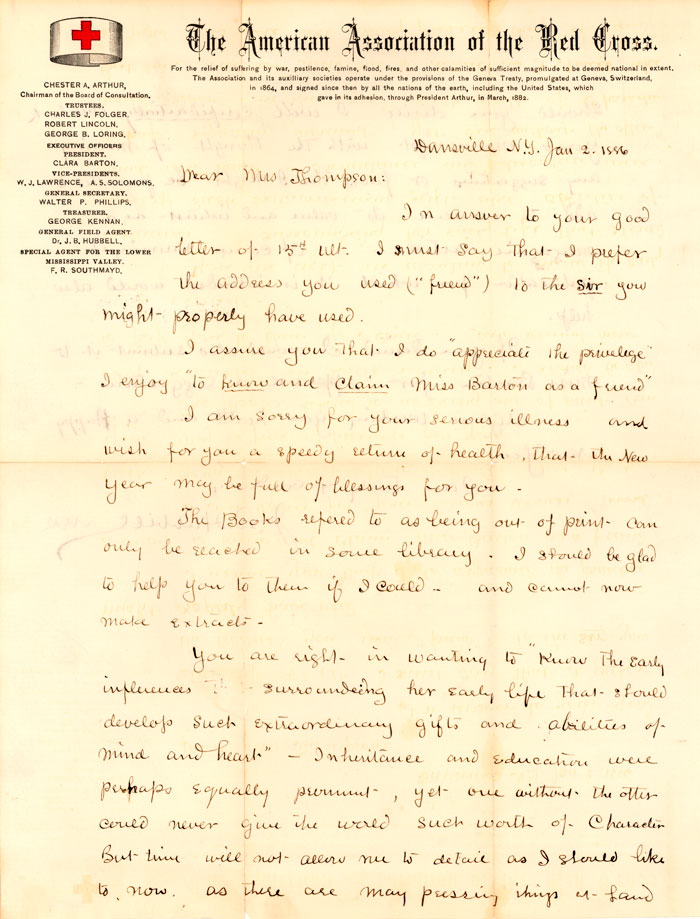 The American Association of the Red Cross.
For the relief of suffering by war, pestilence, famine, flood, fires, and other calamities of sufficient magnitude to be deemed national in extent.
The Association and its auxiliary societies operate under the provisions of the Geneva Treaty, promulgated at Geneva, Switzerland,
in 1864, and signed since then by all the nations of the earth, including the United States, which
gave in its adhesion, through President Arthur, in March, 1882.
CHESTER A. ARTHUR,
Chairman of the Board of Consultation.
TRUSTEES.
CHARLES J. FOLGER,
ROBERT LINCOLN,
GEORGE B. LORING,
EXECUTIVE OFFICERS
PRESIDENT.
CLARA BARTON,
VICE-PRESIDENTS.
W. J. LAWRENCE, A. S. SOLOMONS.
GENERAL SECRETARY.
WALTER P. PHILLIPS,
TREASURER.
GEORGE KENNAN,
GENERAL FIELD AGENT.
Dr. J. B. HUBBELL,
SPECIAL AGENT FOR THE LOWER
MISSISSIPPI VALLEY.
F. R. SOUTHMAYD,
Dansville N.Y. Jan 2. 1886
Dear Mrs Thompson:
In answer to your good
letter of 15th ult. I must say that I prefer
the address you used ("friend") to the sir you
might properly have used.
I assure you that I do "appreciate the privelege
I enjoy "to know and claim Miss Barton as a friend"
I am sorry for your serious illness and
wish for you a speedy return of health, that the New
Year may be full of blessings for you -
The Books refered to as being out of print can
only be reached in some library. I should be glad
to help you to them if I could - and cannot now
make extracts -
You are right in wanting to "Know the early
influences surrounding her early life that should
develop such extraordinary gifts and abilities of
mind and heart" - Inheritance and education were
perhaps equally , yet one without the other
could never give the world such worth of Character
But time will not allow me to detail as I should like
to, now. as there are may pressing things at hand